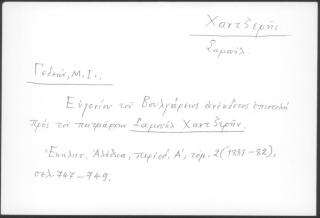 Χαντζερῆς
Σαμουήλ
Γεδεών, Μ. Ι.:
Εὐγενίου τοῦ Βουλγάρεως ἀνέκδοτος ἐπιστολὴ
πρὸς τὸν πατριάρχην Σαμουὴλ Χαντζερῆν.
Ἐκκλησ. Ἀλήθεια, περίοδ. Α', τόμ. 2 (1881-82),
σελ. 747-749.